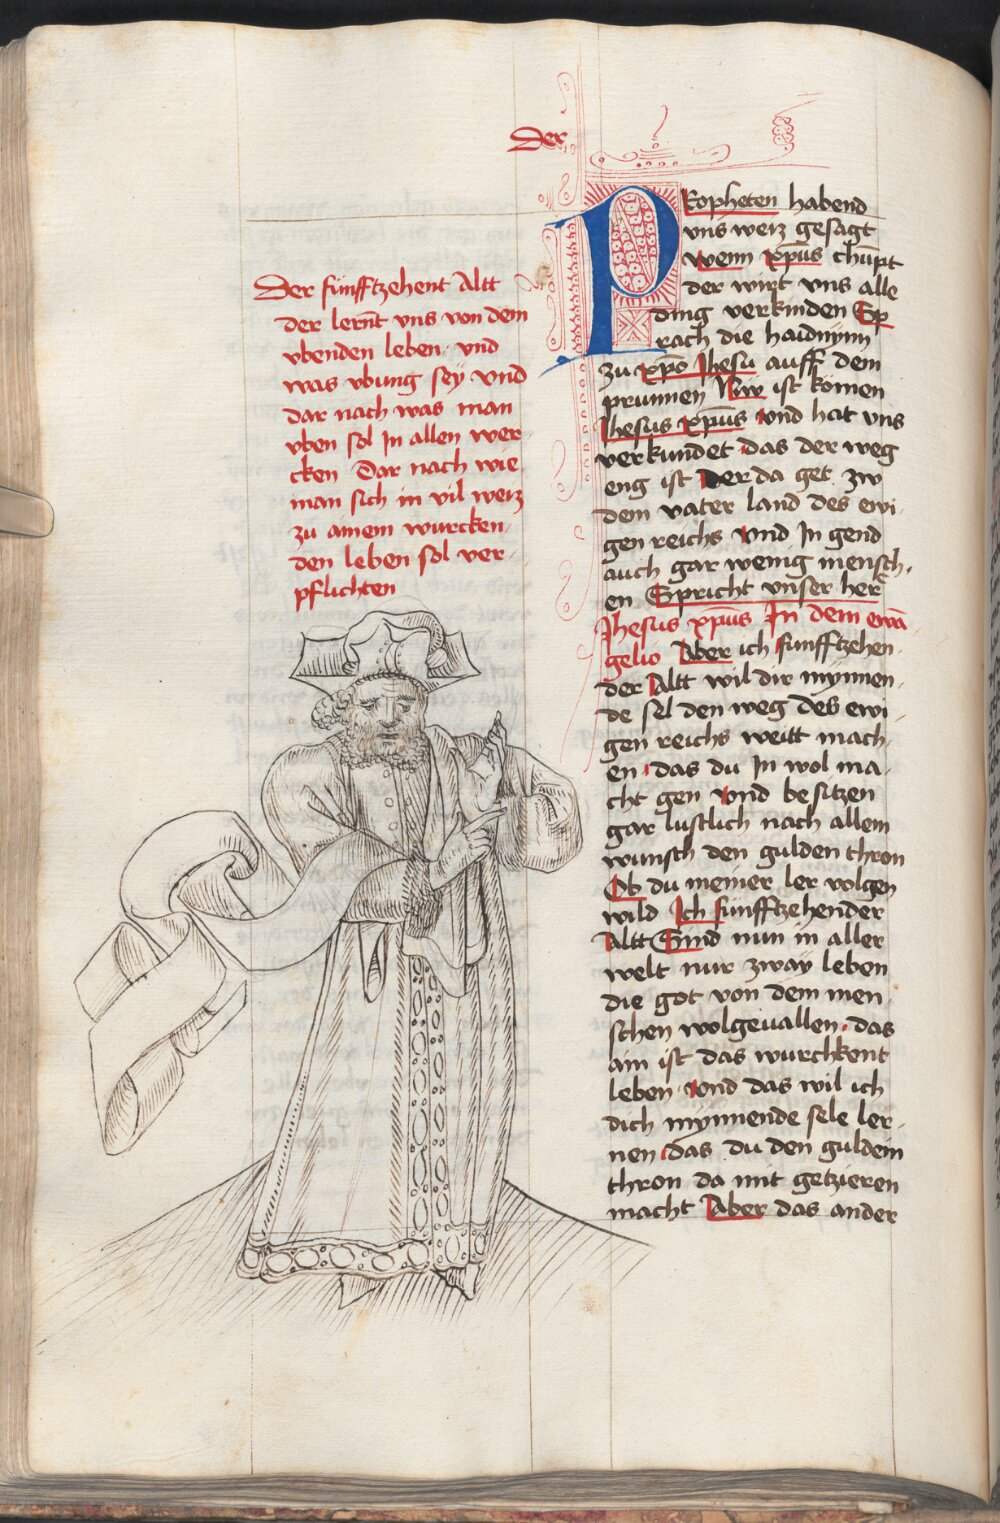 Der
Der fünfftzehent Altt
der lernt vns von dem
vbenden leben vnd
was vbung sey vnd
dar nach was man
vben sol In allen wer
cken Dar nach wie
man sich in vil weiz
zu ainem wurcken
den leben sol ver
pflichten
Propheten habend
vns weiz gesagt
wenn xp̄us chūpt
der wirt vns alle
ding verkinden Sp
rach die haidnynn
zu xp̄o Jhesu auff dem
prunnen Nw ist kömen
Jhesus xp̄us vnd hat vns
verkundet das der weg
eng ist Der da get zw
dem vater land des ewi
gen reichs vnd In gend
auch gar wenig mensch
en Spricht vnser her
Jhesus xp̄us In dem ewā
gelio Aber ich funfftzehen
der Altt wil dir mynnen
de sel den weg des ewi
gen reichs weitt mach
en das du In wol ma
cht gen vnd besitzen
gar lustlich nach allem
wunsch den gulden thron
Ob du meiner ler volgen
wild Ich fünfftzehender
Altt Sind nun in aller
welt nur zway leben
die got von dem men
schen wolgeuallen das
ain ist das wurchkent
leben vnd das wil ich
dich mynnende sele ler
nen das du den guldein
thron da mit getzieren
macht Aber das ander